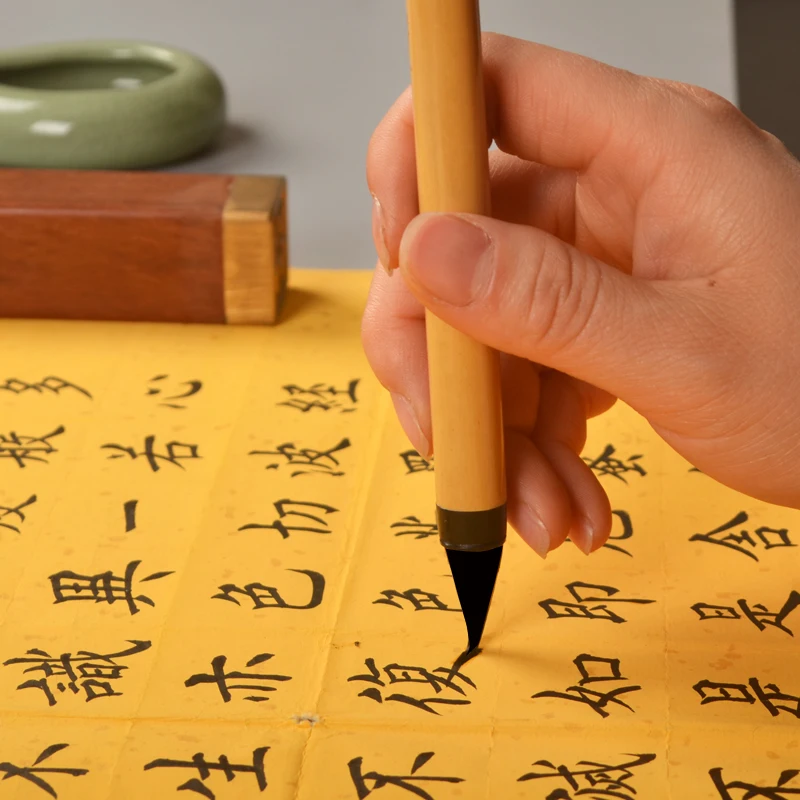 舍是是不
即如滅
色復不
経波切色亦生
心若一異識
多般